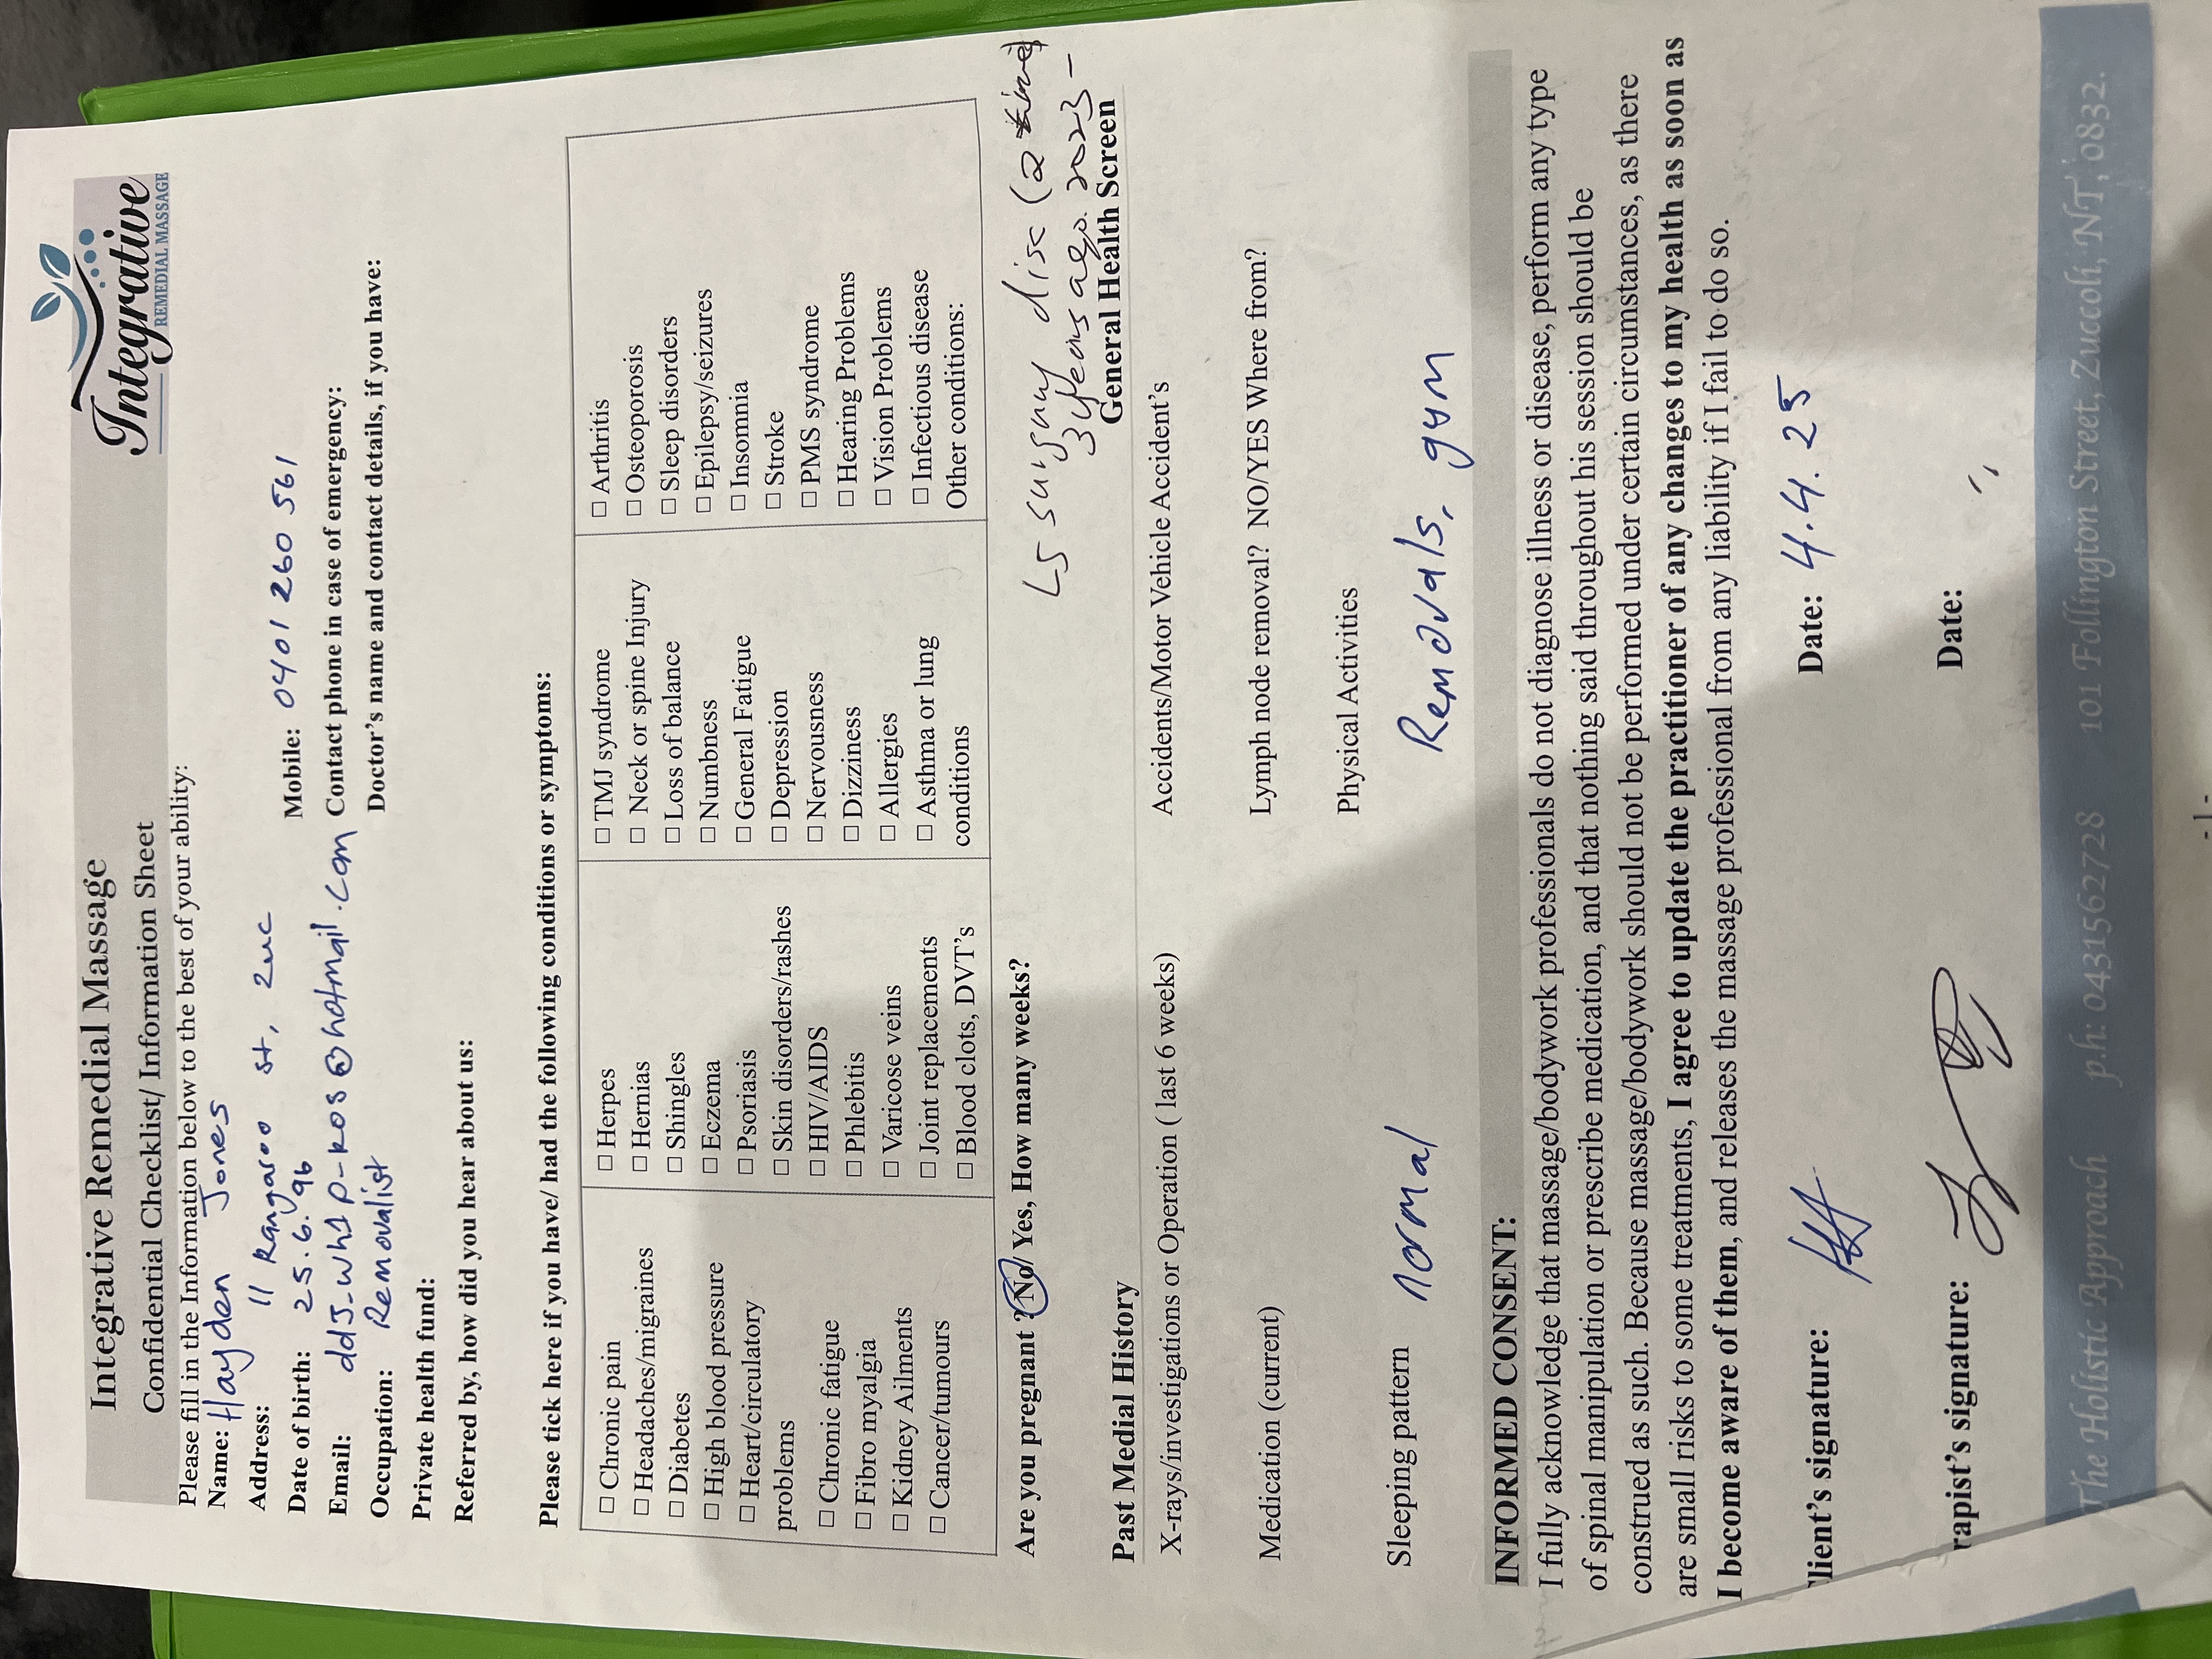 Integrative Remedial Massage
Confidential Checklist/ Information Sheet
Integrative
REMEDIAL MASSAGE
Please fill in the Information below to the best of your ability:
Name: Hayden Jones
Address: 11 Rangaroo st, Zuc
Date of birth: 25.6.96 Mobile: 0401 260 561
Email: @hotmail.com Contact phone in case of emergency:
Occupation: Removalist Doctor's name and contact details, if you have:
Private health fund:
Referred by, how did you hear about us:
Please tick here if you have/ had the following conditions or symptoms:
☐ Chronic pain
☐ Headaches/migraines
☐ Diabetes
☐ High blood pressure
☐ Heart/circulatory
problems
☐ Chronic fatigue
☐ Fibro myalgia
☐ Kidney Ailments
☐ Cancer/tumours
☐ Herpes
☐ Hernias
☐ Shingles
☐ Eczema
☐ Psoriasis
☐ Skin disorders/rashes
☐ HIV/AIDS
☐ Phlebitis
☐ Varicose veins
☐ Joint replacements
☐ Blood clots, DVT's
☐ TMJ syndrome
☐ Neck or spine Injury
☐ Loss of balance
☐ Numbness
☐ General Fatigue
☐ Depression
☐ Nervousness
☐ Dizziness
☐ Allergies
☐ Asthma or lung
conditions
☐ Arthritis
☐ Osteoporosis
☐ Sleep disorders
☐ Epilepsy/seizures
☐ Insomnia
☐ Stroke
☐ PMS syndrome
☐ Hearing Problems
☐ Vision Problems
☐ Infectious disease
Other conditions:
Are you pregnant ? No/ Yes, How many weeks?
L5 surgery disc (2
3 years ago. 2023 -
Past Medical History
General Health Screen
X-rays/investigations or Operation ( last 6 weeks)
Accidents/Motor Vehicle Accident's
Medication (current)
Lymph node removal? NO/YES Where from?
Physical Activities
Sleeping pattern normal
Removals, gym
INFORMED CONSENT:
I fully acknowledge that massage/bodywork professionals do not diagnose illness or disease, perform any type
of spinal manipulation or prescribe medication, and that nothing said throughout his session should be
construed as such. Because massage/bodywork should not be performed under certain circumstances, as there
are small risks to some treatments, I agree to update the practitioner of any changes to my health as soon as
I become aware of them, and releases the massage professional from any liability if I fail to do so.
Client's signature: Date: 4.4.25
rapist's signature: Date: "
The Holistic Approach p.h: 0431562728 101 Follington Street, Zuccoli, NT, 0832.
- 1 -